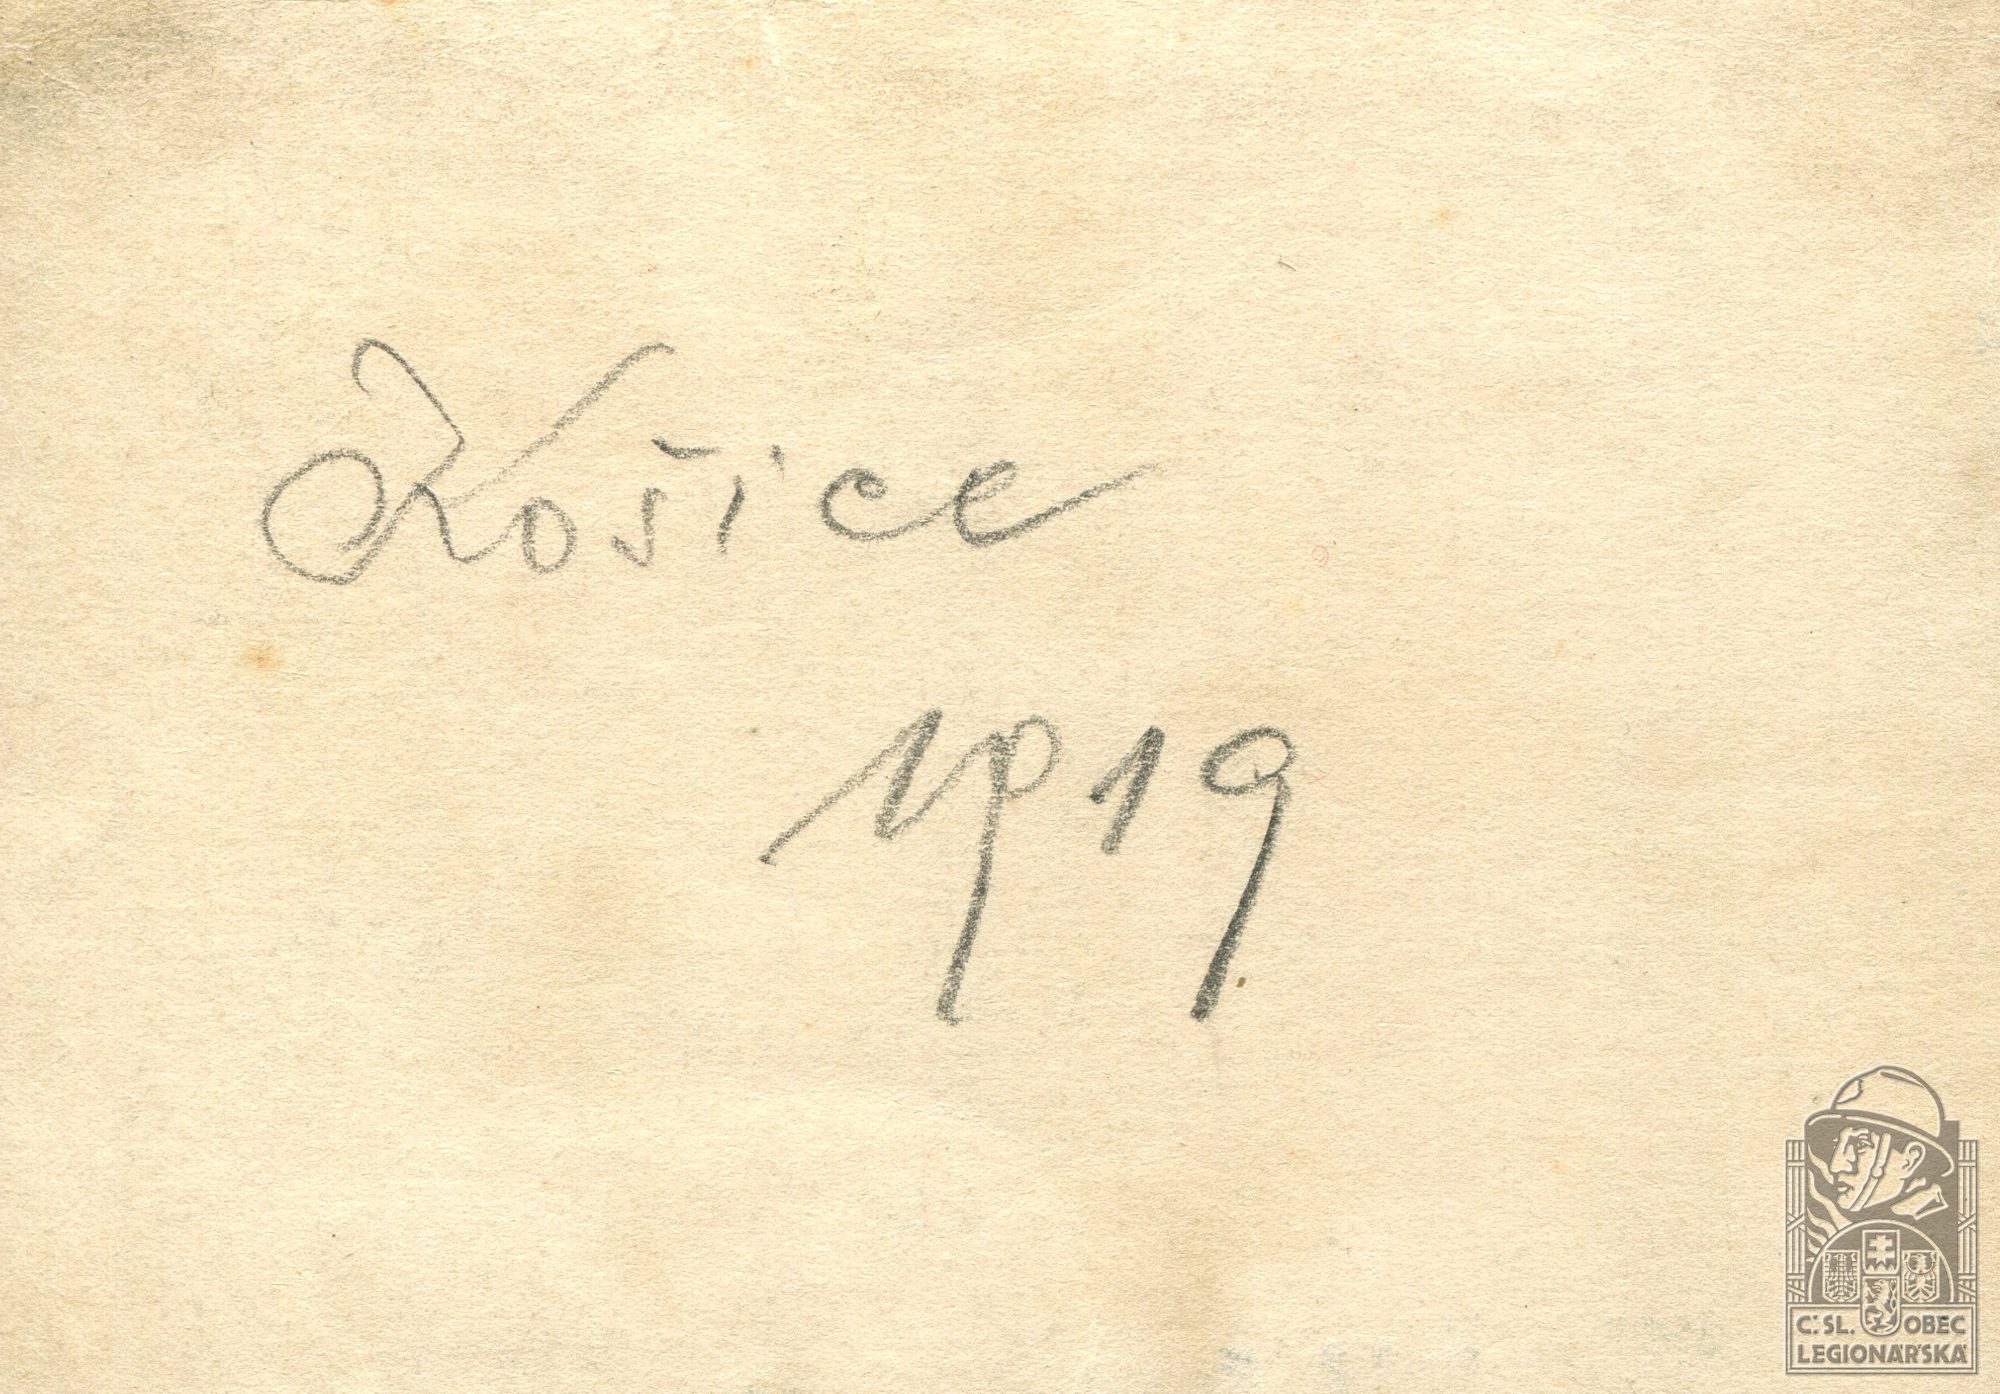 Košice
1919
Č.SL. OBEC
LEGIONÁŘSKÁ